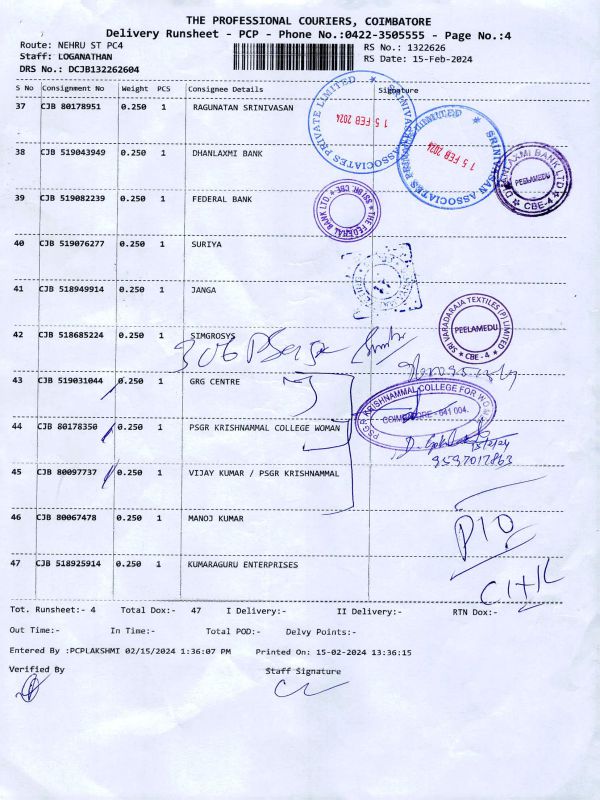 THE PROFESSIONAL COURIERS, COIMBATORE
Delivery Runsheet - PCP - Phone No.:0422-3505555 - Page No.:4
Route: NEHRU ST PC4
RS No.: 1322626
Staff: LOGANATHAN
RS Date: 15-Feb-2024
DRS No.: DCJB132262604
S No Consignment No Weight PCS Consignee Details Signature
37 CJB 80178951 0.250 1 RAGUNATAN SRINIVASAN
SRINIVASAN ASSOCIATES PRIVATE LIMITED
15 FEB 2024
SRINIVASAN ASSOCIATES PRIVATE LIMITED
15 FEB 2024
38 CJB 519043949 0.250 1 DHANLAXMI BANK
DHANLAXMI BANK LTD
PEELAMEDU
CBE-4
39 CJB 519082239 0.250 1 FEDERAL BANK
THE FEDERAL BANK LTD.
40 CJB 519076277 0.250 1 SURIYA
41 CJB 518949914 0.250 1 JANGA
SRI VARADARAJA TEXTILES (P) LIMITED
PEELAMEDU
CBE - 4
42 CJB 518685224 0.250 1 SIMGROSYS
43 CJB 519031044 0.250 1 GRG CENTRE
PSGR KRISHNAMMAL COLLEGE FOR WOMEN
COIMBATORE - 641 004.
44 CJB 80178350 0.250 1 PSGR KRISHNAMMAL COLLEGE WOMAN
15/2/24
9597017863
45 CJB 80097737 0.250 1 VIJAY KUMAR / PSGR KRISHNAMMAL
46 CJB 80067478 0.250 1 MANOJ KUMAR
P10
47 CJB 518925914 0.250 1 KUMARAGURU ENTERPRISES
Tot. Runsheet:- 4 Total Dox:- 47 I Delivery:- II Delivery:- RTN Dox:-
Out Time:- In Time:- Total POD:- Delvy Points:-
Entered By :PCPLAKSHMI 02/15/2024 1:36:07 PM Printed On: 15-02-2024 13:36:15
Verified By Staff Signature